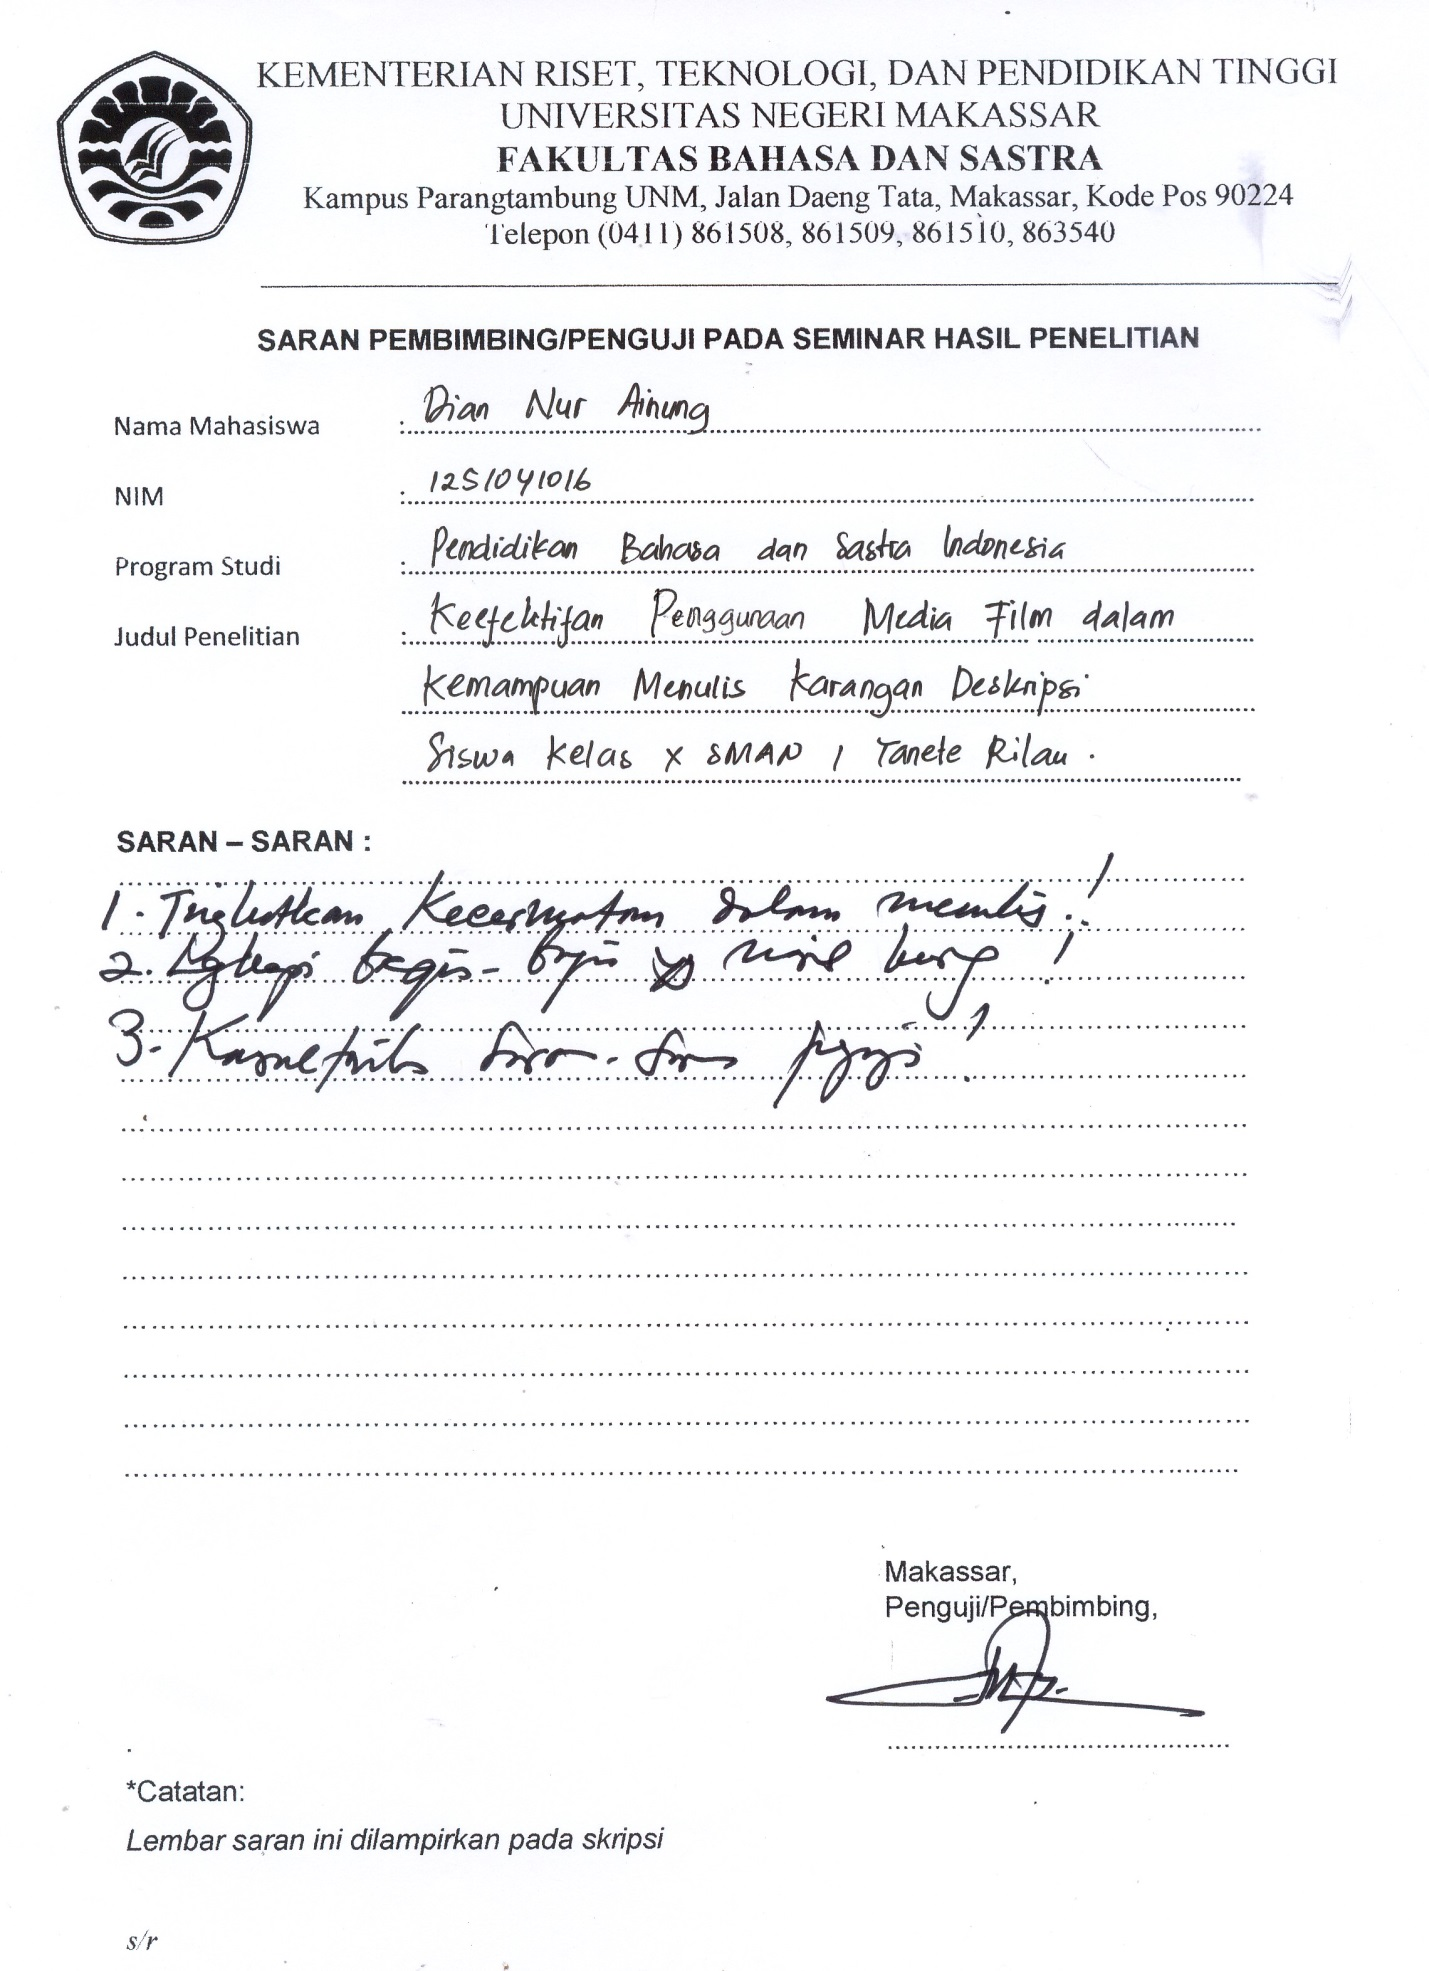 KEMENTERIAN RISET, TEKNOLOGI, DAN PENDIDIKAN TINGGI
UNIVERSITAS NEGERI MAKASSAR
FAKULTAS BAHASA DAN SASTRA
Kampus Parangtambung UNM, Jalan Daeng Tata, Makassar, Kode Pos 90224
Telepon (0411) 861508, 861509, 861510, 863540
SARAN PEMBIMBING/PENGUJI PADA SEMINAR HASIL PENELITIAN
Nama Mahasiswa : Dian Nur Ainung
NIM : 1251041016
Program Studi : Pendidikan Bahasa dan Sastra Indonesia
Judul Penelitian : Keefektifan Penggunaan Media Film dalam
Kemampuan Menulis Karangan Deskripsi
Siswa Kelas X SMAN 1 Tanete Rilau.
SARAN – SARAN :
1. Tingkatkan Kecermatan dalam menulis!
2. Lengkapi bagian-bagian yg !
3. saran-saran penguji!
Makassar,
Penguji/Pembimbing,
*Catatan:
Lembar saran ini dilampirkan pada skripsi
s/r